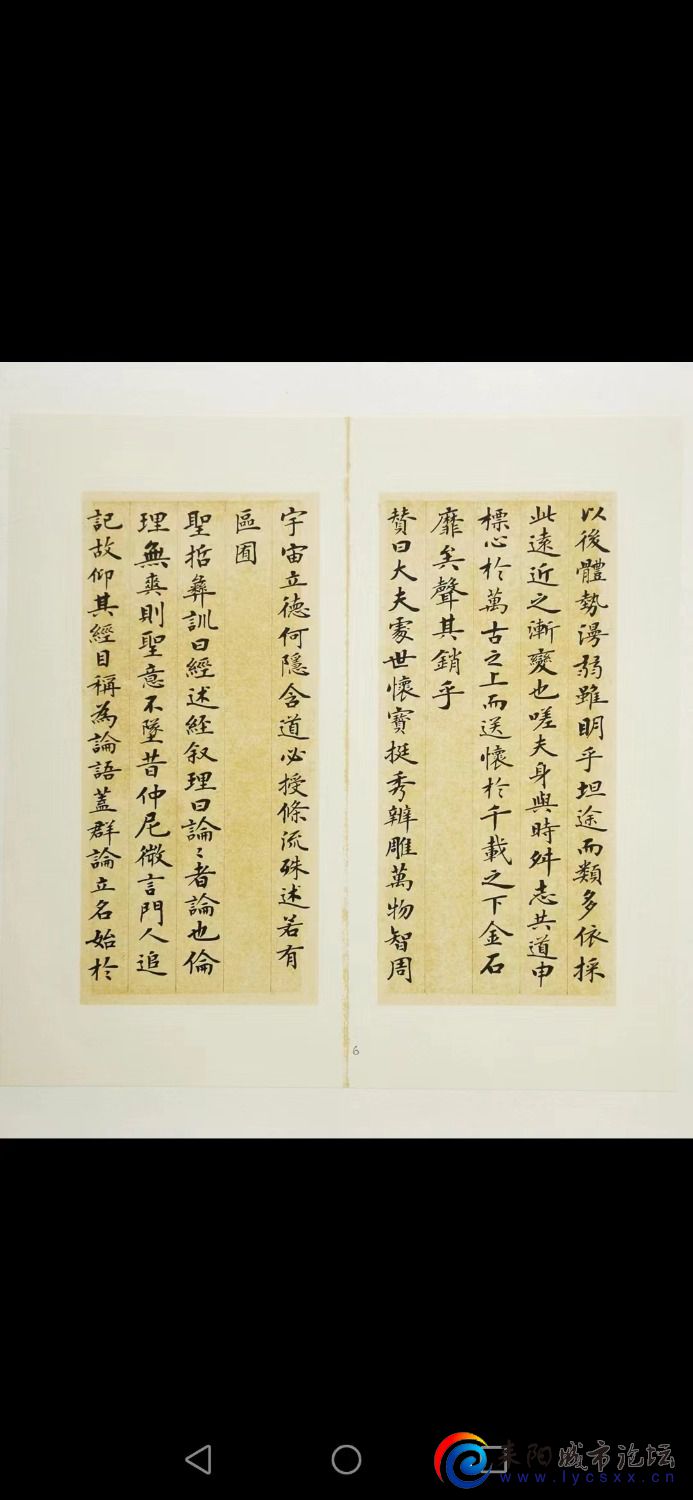 以後體勢漫弱雖明乎坦途而類多依採
此遠近之漸變也嗟夫身與時舛志共道申
標心於萬古之上而送懷於千載之下金石
靡矣聲其銷乎
贊曰大夫處世懷寶挺秀辨雕萬物智周
宇宙立德何隱含道必授條流殊述若有
區囿
聖哲彝訓曰經述經叙理曰論〻者論也倫
理無爽則聖意不墜昔仲尼微言門人追
記故仰其經目稱為論語蓋群論立名始於
6
耒阳城市论坛
www.lycsxx.cn